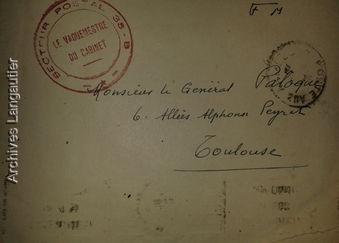 F M
SECTEUR POSTAL 35-B
LE VAGUEMESTRE
DU CABINET
Monsieur le Général Paloque
6. Allées Alphonse Peyrat
Toulouse
Archives Langautier